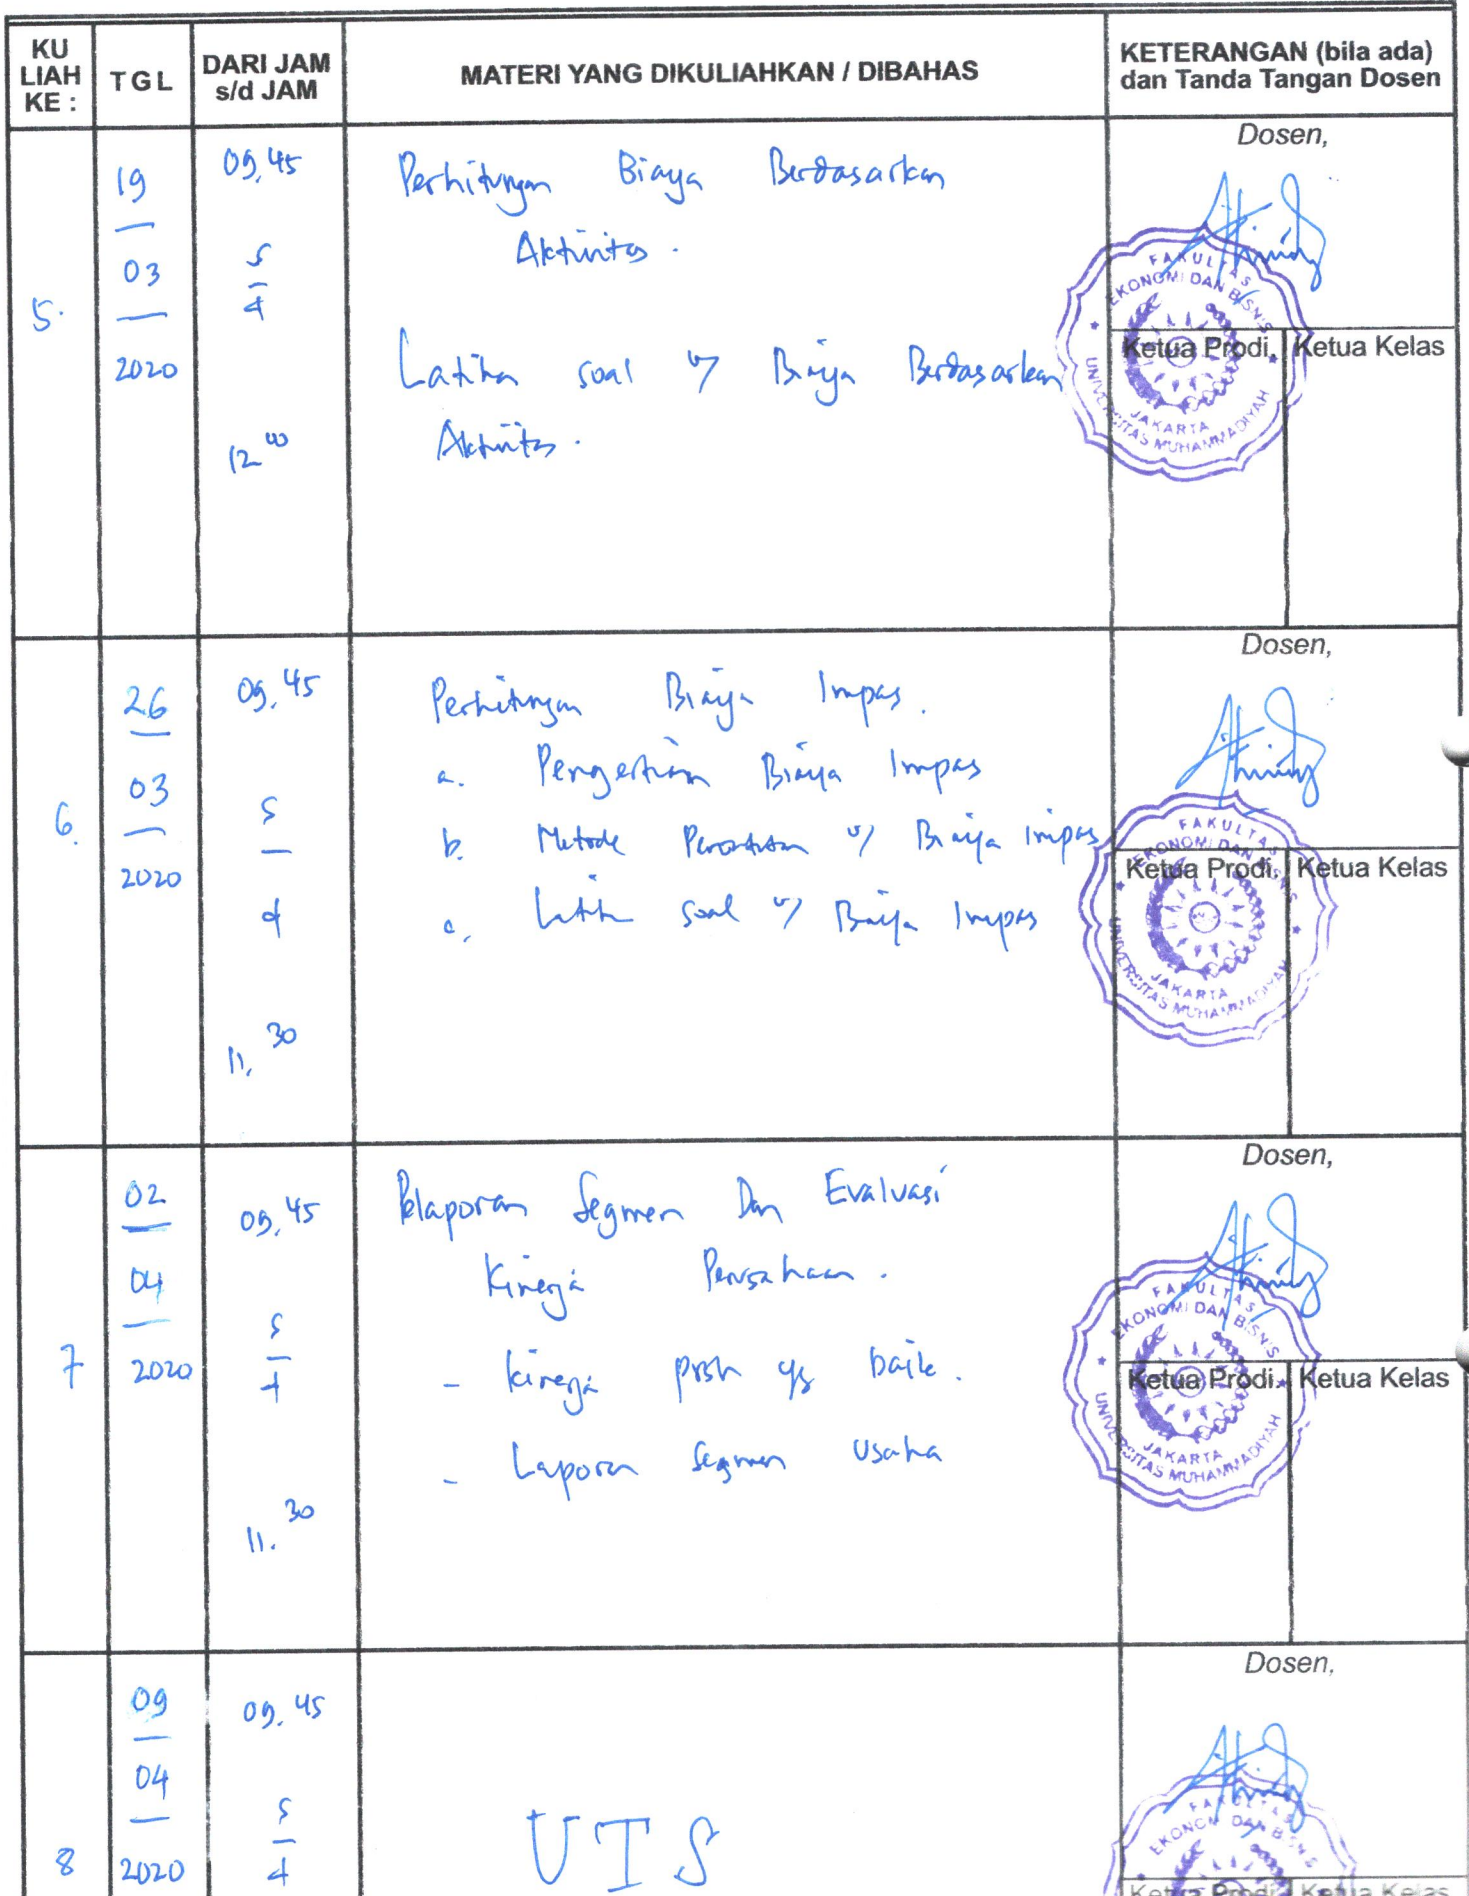 KU LIAH KE :
TGL
DARI JAM s/d JAM
MATERI YANG DIKULIAHKAN / DIBAHAS
KETERANGAN (bila ada)
dan Tanda Tangan Dosen
5.
19
03
2020
09.45
s
d
12 00
Perhitungan Biaya Berdasarkan
Aktivitas.
Latihan soal u/ Biaya Berdasarkan
Aktivitas.
Dosen,
FAKULTAS
EKONOMI DAN BISNIS
JAKARTA
UNIVERSITAS MUHAMMADIYAH
Ketua Prodi. Ketua Kelas
6.
26
03
2020
09.45
s
d
11.30
Perhitungan Biaya Impas.
a. Pengertian Biaya Impas
b. Metode u/ Biaya impas
c. Latih soal u/ Biaya Impas
Dosen,
FAKULTAS
EKONOMI DAN BISNIS
JAKARTA
UNIVERSITAS MUHAMMADIYAH
Ketua Prodi. Ketua Kelas
7
02
04
2020
09.45
s
d
11.30
Pelaporan Segmen Dan Evaluasi
Kinerja Perusahaan.
- kinerja prsh yg baik.
- Laporan Segmen Usaha
Dosen,
FAKULTAS
EKONOMI DAN BISNIS
JAKARTA
UNIVERSITAS MUHAMMADIYAH
Ketua Prodi. Ketua Kelas
8
09
04
2020
09.45
s
d
UTS
Dosen,
FAKULTAS
EKONOMI DAN BISNIS
Ketua Prodi. Ketua Kelas